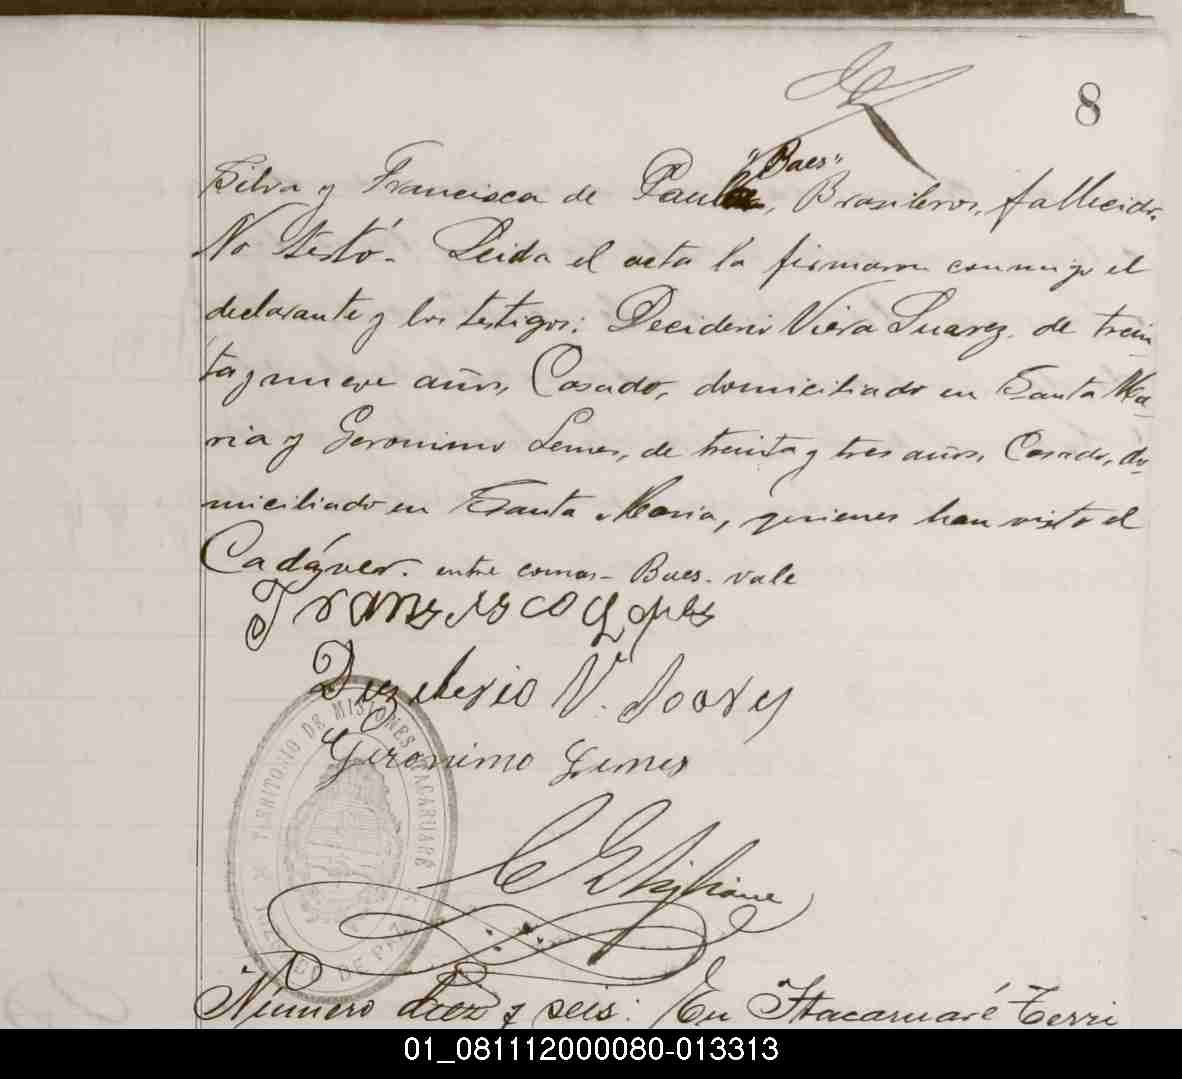 8
"Baes"
Silva y Francisca de Paula, Brasileros, fallecidos.
No testó. Leida el acta la firmaron conmigo el
declarante y los testigos: Deciderio Viera Suarez, de trein
ta y nueve años, Casado, domiciliado en Santa Ma-
ria y Geronimo Lemes, de treinta y tres años, Casado, do-
miciliado en Santa Maria, quienes han visto el
Cadáver. entre comas - Baes. vale
Fransisco Lopes
Deziderio V. Soares
Geronimo Lemes
TERRITORIO DE MISIONES ITACARUARÉ
JUZGADO DE PAZ
Número diez y seis: En Itacaruaré Terri
01_081112000080-013313